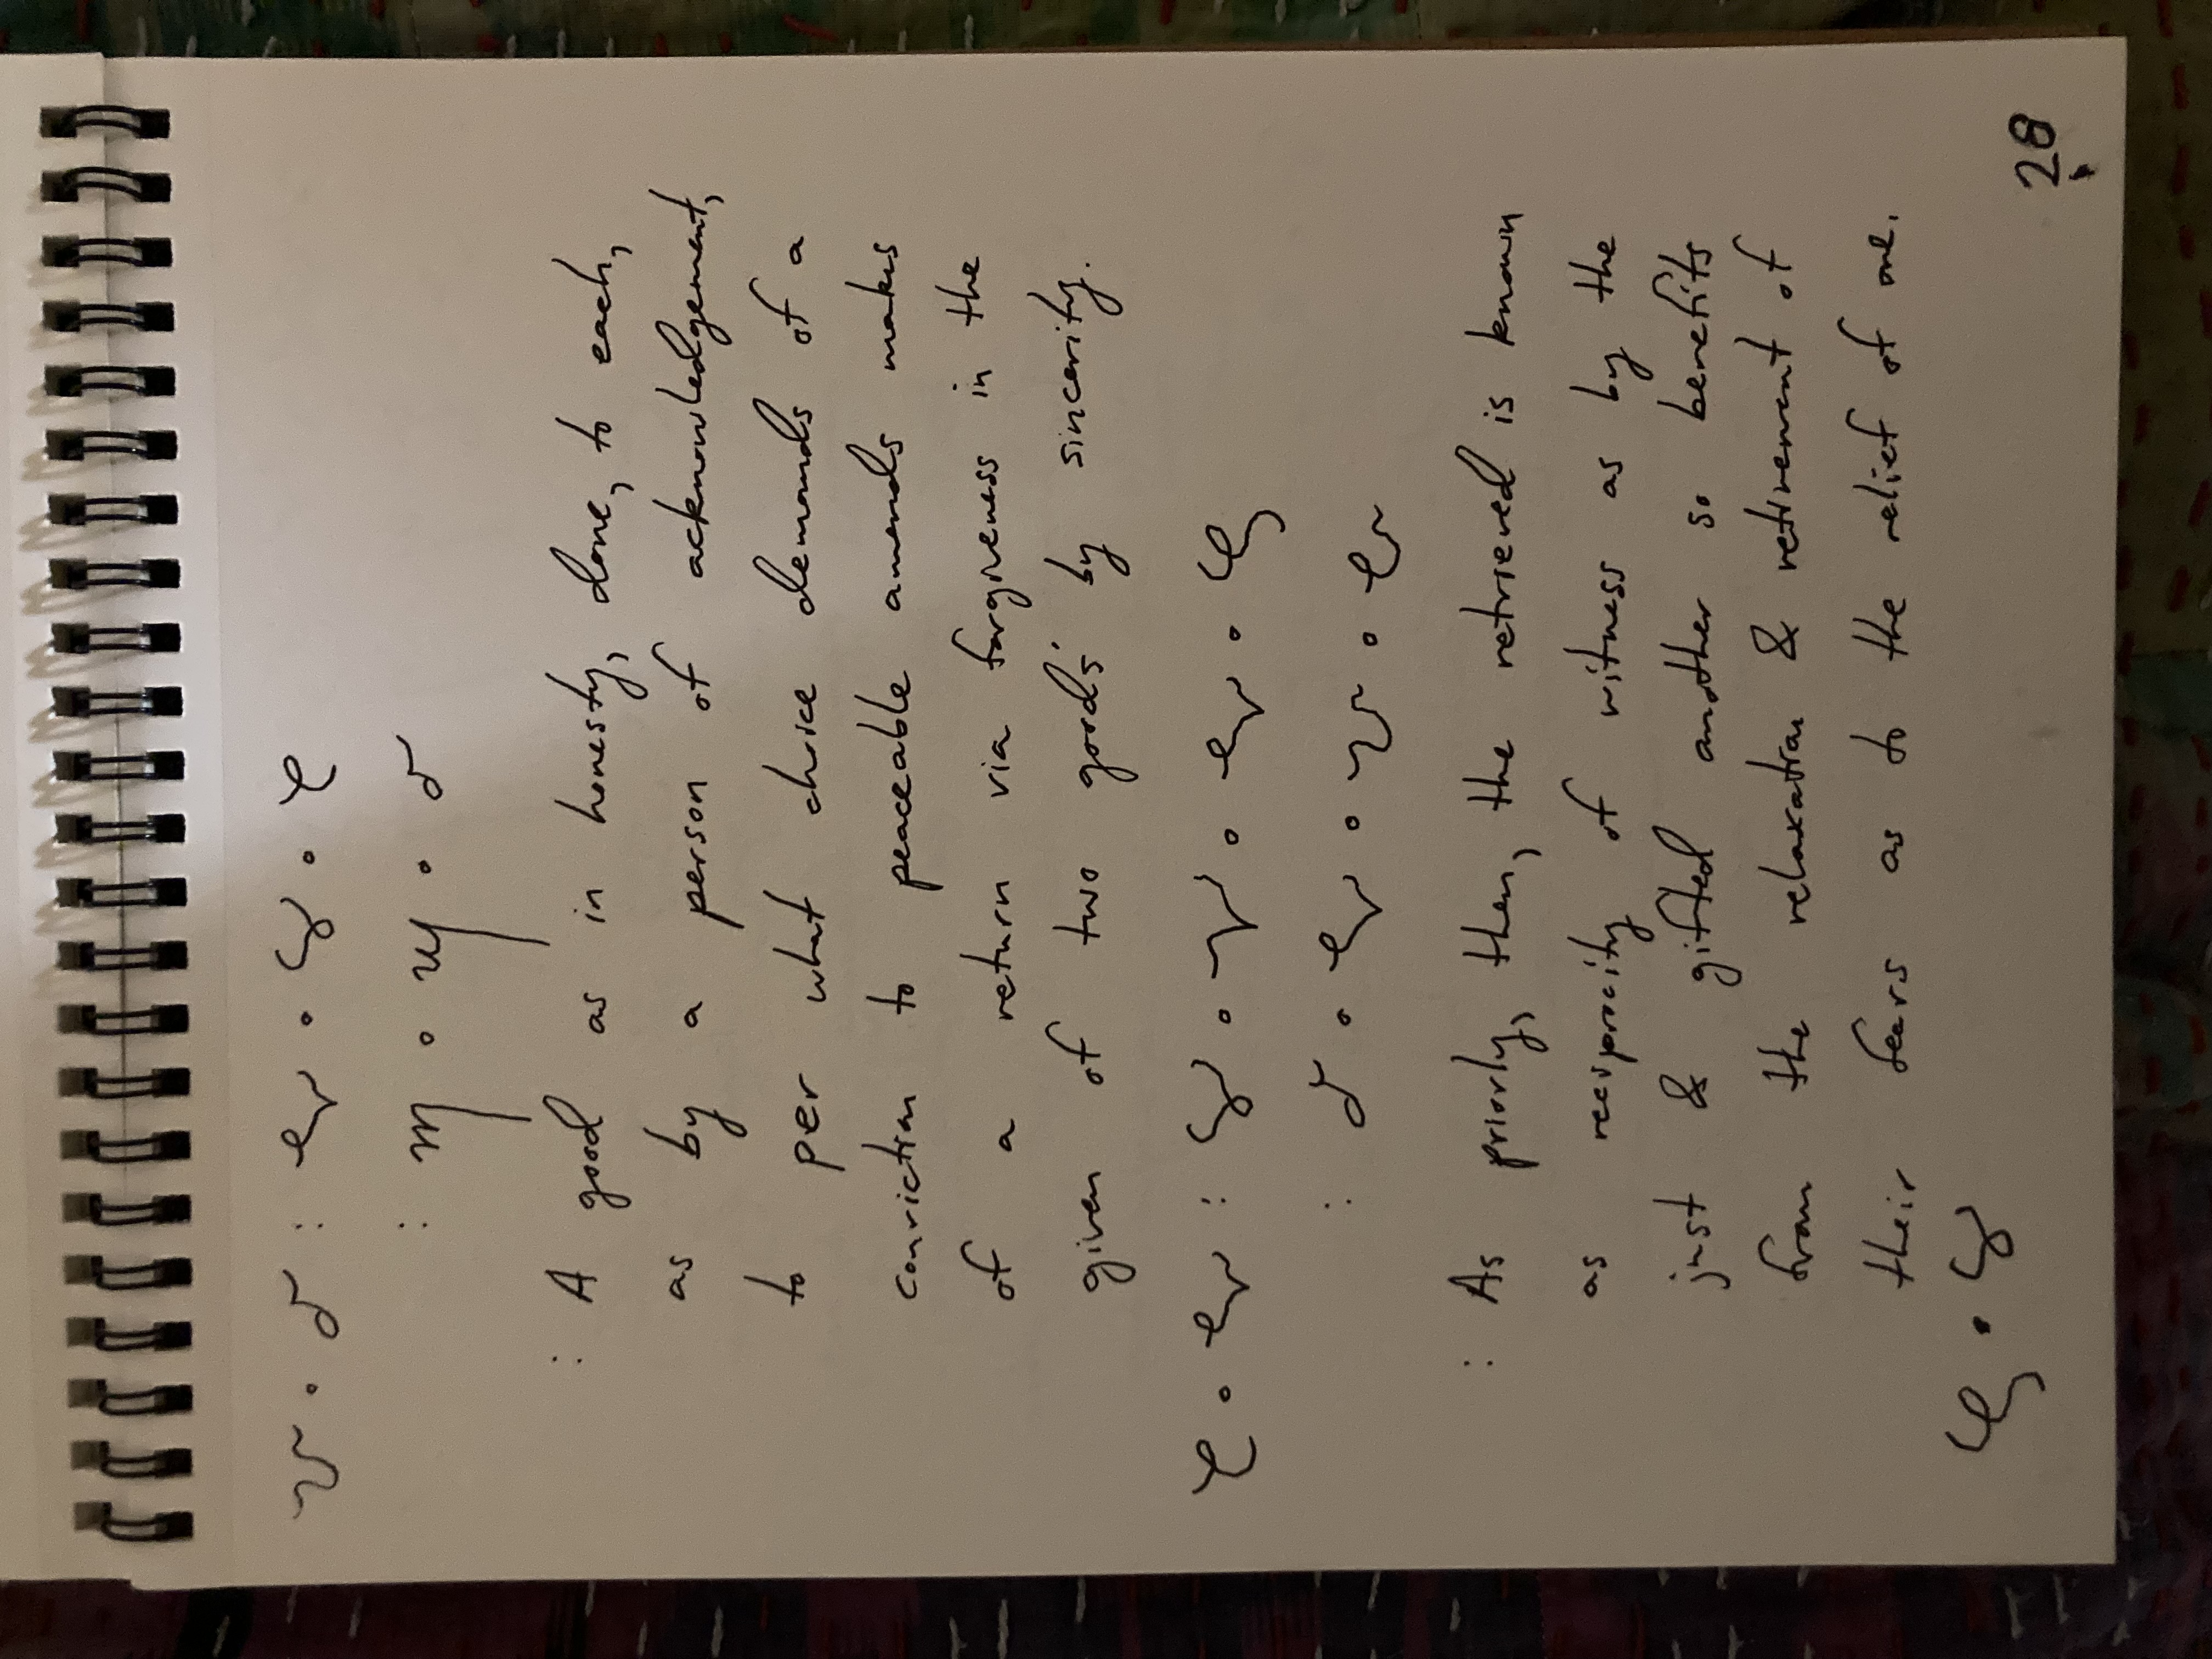 : A good as in honesty, done, to each,
as by a person of acknowledgement,
to per what choice demands of a
conviction to peaceable amends makes
of a return via forgiveness in the
given of two goods' by sincerity.
: As priorly, then, the retrieved is known
as reciprocity of witness as by the
just & gifted another so benefits
from the relaxation & retirement of
their fears as to the relief of one.
28